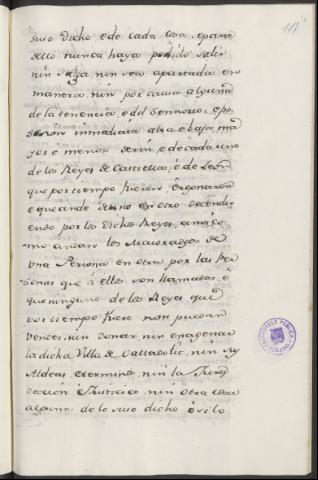 suso dicho è de cada cosa, è parte
dello nunca haya podido salir
nin salga, nin sea apartada en
manera, nin por causa alguna
de la tenencia, è del Sennorio, e po
sesion inmediata alta e baja, ma
jor e menor de mi, e de cada uno
de los Reyes de Castiella, è de Leon
que por tiempo fueren è reynaren
e que ande de uno en otro decendi
endo por los dichos Reyes, ansi co
mo andan los Mayorazgos de
una Persona en otra por las per
sonas que à ellos son llamados, è
que ninguno de los Reyes que
por tiempo fuere non puedan
vender, nin donar nin enagenar
la dicha Villa de Valladolid, nin sus
Aldeas, è terminos, nin la Juris
diccion è Justicia, nin otra cosa
alguna de lo suso dicho, è si lo
BIBLIOTECA PUBLICA
TOLEDO